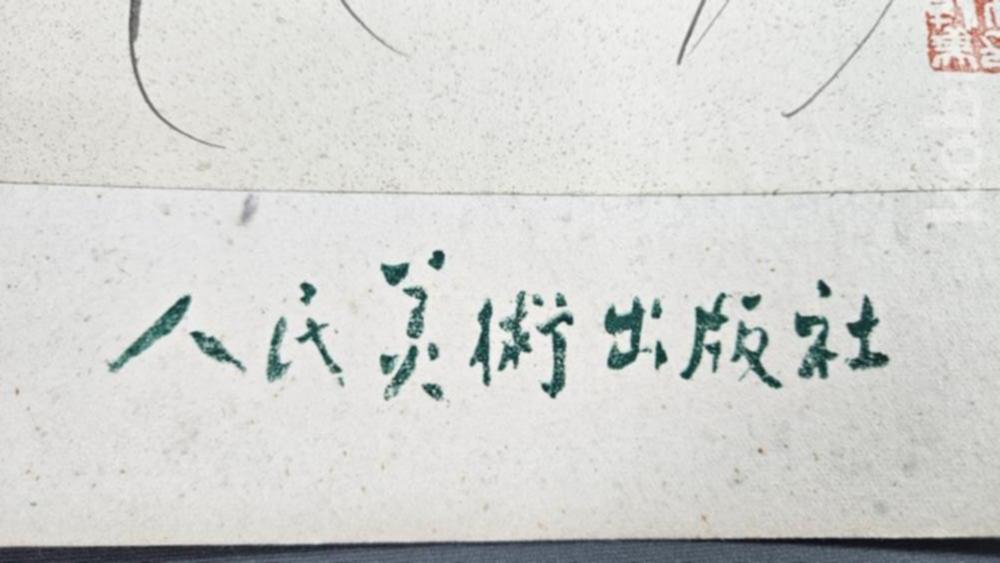 人民美術出版社